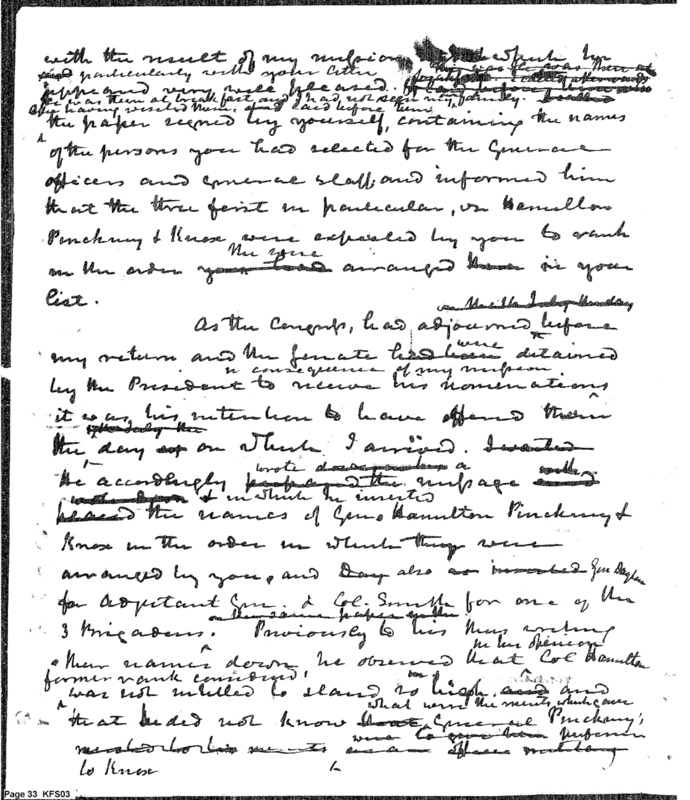 with the result of my mission which he
and particularly with your letter
appeared very well pleased.
he was then at breakfast and I had not seen my family.
having rested them laid before him
the paper signed by yourself, containing the names
of the persons you had selected for the General
officers and general staff; and informed him
that the three first in particular, viz Hamilton
Pinckney & Knox were expected by you to rank
they were
in the order you had arranged them in your
list.
As the Congress, had adjourned before
were
my return and the Senate had been detained
in consequence of my mission
by the President to receive his nominations
it was his intention to have offered them
the day on which I arrived. I waited
wrote a
He accordingly prepared the message
& in which he inserted
placed the names of Gen. Hamilton Pinckney &
Knox in the order in which they were
arranged by you, and also as inserted Gen Dayton
for Adjutant Gen. & Col. Smith for one of the
on the same paper
3 Brigadiers. Previously to his thus writing
in his opinion
their names down he observed that Col Hamilton
former rank considered
was not entitled to stand so high, and and
what were the merits which gave
that he did not know that General Pinckney's
were to give him preference
to Knox
Page 33 KFS03